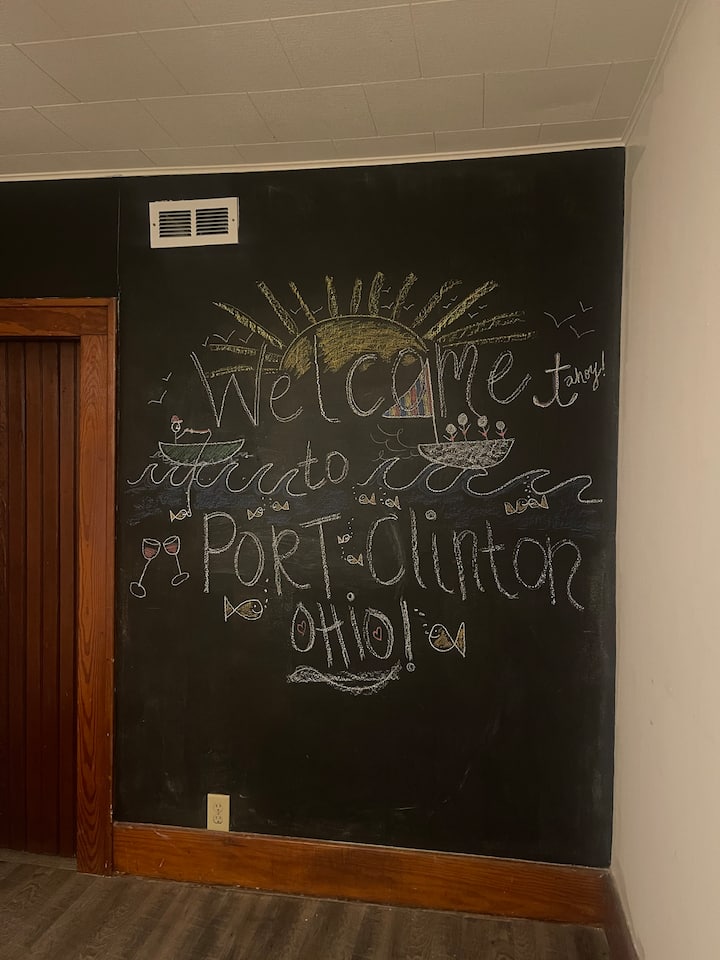 Welcome
tahoy!
to
PORT Clinton
OHiO!